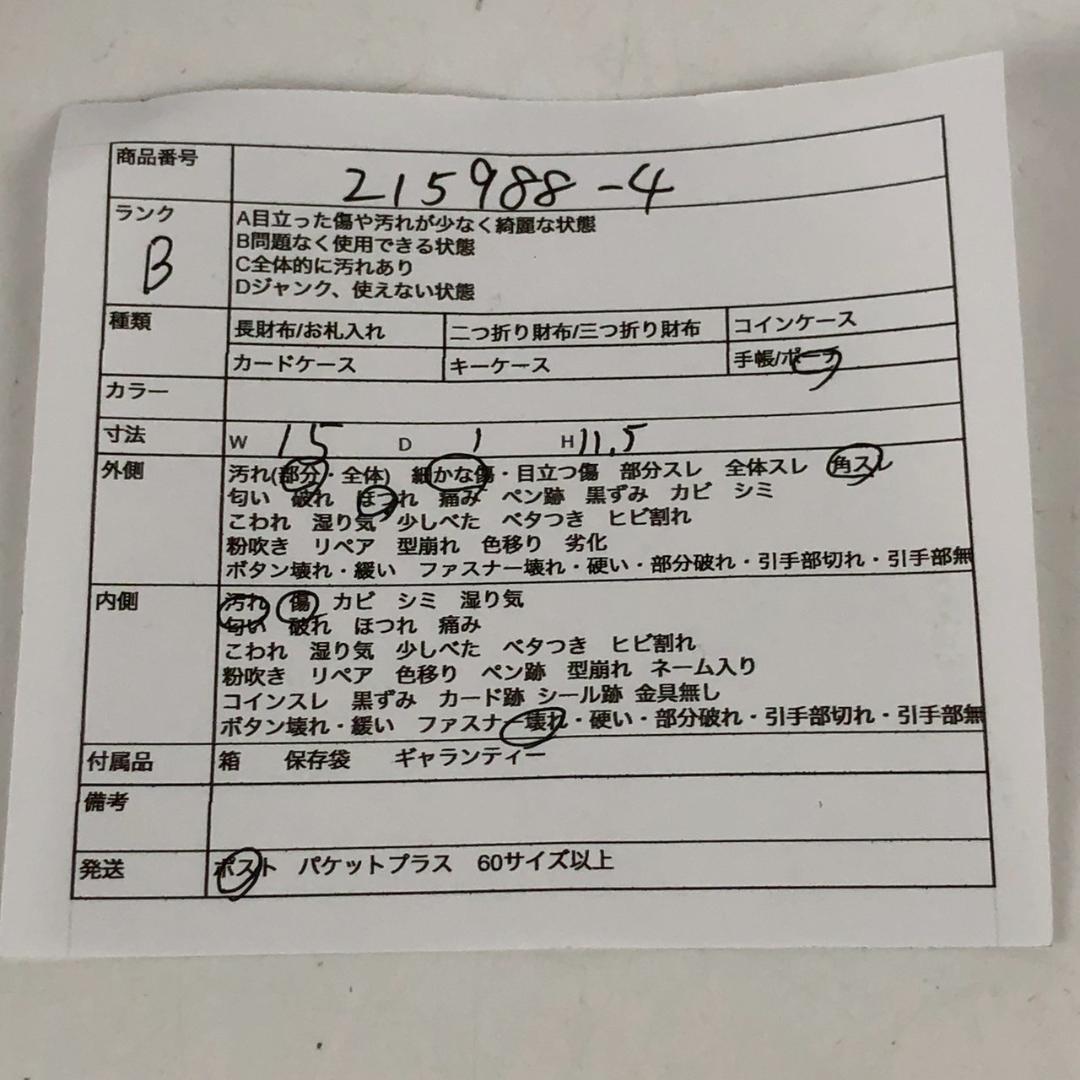 商品番号 215988-4
ランク B
A目立った傷や汚れが少なく綺麗な状態
B問題なく使用できる状態
C全体的に汚れあり
Dジャンク、使えない状態
種類 長財布/お札入れ 二つ折り財布/三つ折り財布 コインケース
カードケース キーケース 手帳/ポーチ
カラー
寸法 W 15 D 1 H 11.5
外側 汚れ(部分・全体) 細かな傷・目立つ傷 部分スレ 全体スレ 角スレ
匂い 破れ ほつれ 痛み ペン跡 黒ずみ カビ シミ
こわれ 湿り気 少しべた ベタつき ヒビ割れ
粉吹き リペア 型崩れ 色移り 劣化
ボタン壊れ・緩い ファスナー壊れ・硬い・部分破れ・引手部切れ・引手部無
内側 汚れ 傷 カビ シミ 湿り気
匂い 破れ ほつれ 痛み
こわれ 湿り気 少しべた ベタつき ヒビ割れ
粉吹き リペア 色移り ペン跡 型崩れ ネーム入り
コインスレ 黒ずみ カード跡 シール跡 金具無し
ボタン壊れ・緩い ファスナー壊れ・硬い・部分破れ・引手部切れ・引手部無
付属品 箱 保存袋 ギャランティー
備考
発送 ポスト パケットプラス 60サイズ以上